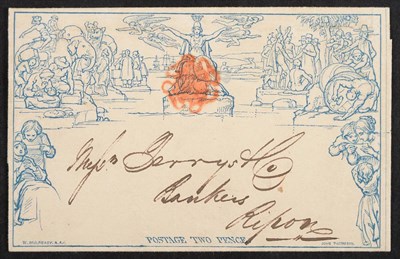 Messrs Terrys & Co
Bankers
Ripon
POSTAGE TWO PENCE
W. MULREADY, R.A.
JOHN THOMPSON